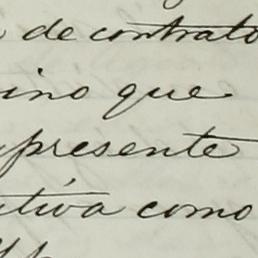 de contrato
ino que
presente
tiva como